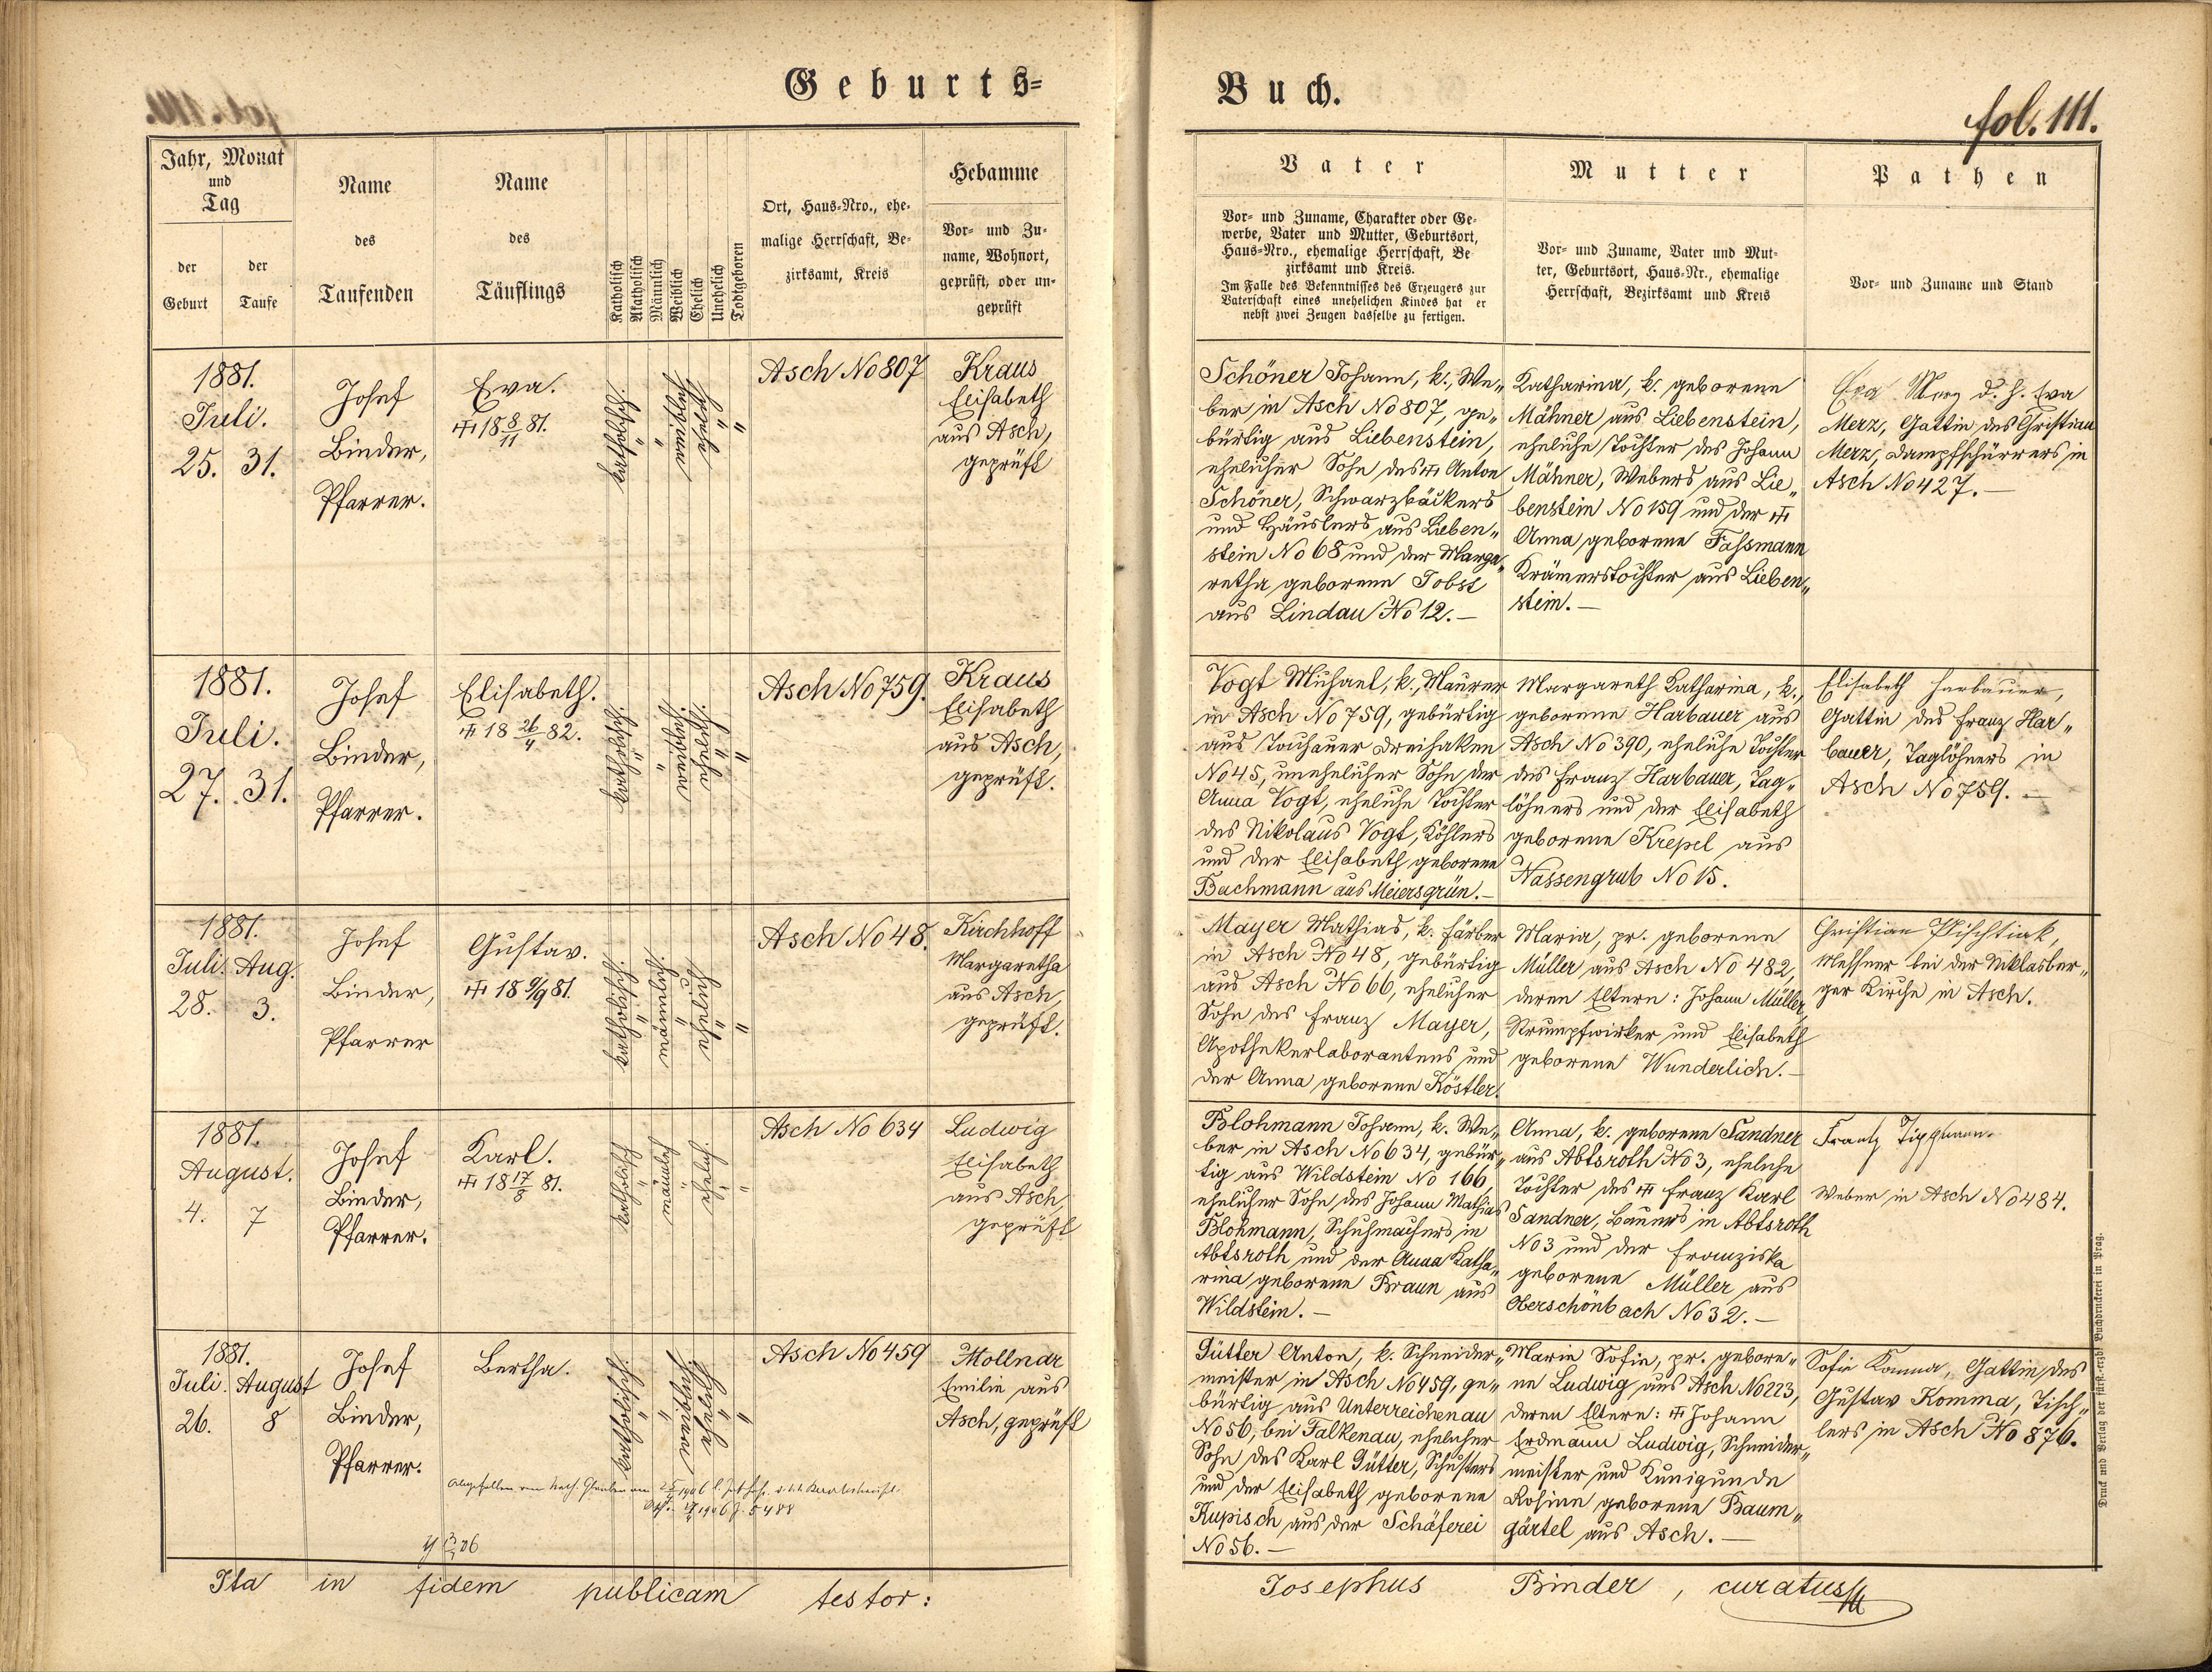 Geburts=
Buch.
fol. 111.
Jahr, Monat
und
Tag
der
Geburt
der
Taufe
Name
des
Taufenden
Name
des
Täuflings
Katholisch
Akatholisch
Männlich
Weiblich
Ehelich
Unehelich
Todtgeboren
Ort, Haus-Nro., ehe-
malige Herrschaft, Be-
zirksamt, Kreis
Hebamme
Vor- und Zu-
name, Wohnort,
geprüft, oder un-
geprüft
Vater
Vor- und Zuname, Charakter oder Ge-
werbe, Vater und Mutter, Geburtsort,
Haus-Nro., ehemalige Herrschaft, Be
zirksamt und Kreis.
Im Falle des Bekenntnisses des Erzeugers zur
Vaterschaft eines unehelichen Kindes hat er
nebst zwei Zeugen dasselbe zu fertigen.
Mutter
Vor- und Zuname, Vater und Mut-
ter, Geburtsort, Haus-Nr., ehemalige
Herrschaft, Bezirksamt und Kreis
Pathen
Vor- und Zuname und Stand
1881.
Juli.
25. 31.
Josef
Binder,
Pfarrer.
Eva.
18 8/11 81.
katholisch.
"
"
weiblich.
ehelich.
"
"
Asch No 807
Kraus
Elisabeth
aus Asch,
geprüft
Schöner Johann, k., We„
ber in Asch No 807, ge„
bürtig aus Liebenstein,
ehelicher Sohn des Anton
Schöner, Schwarzbäckers
und Häuslers aus Lieben„
stein No 68 und der Marga„
retha geborene Jobst
aus Lindau No 12. —
Katharina, k. geborene
Mähner aus Liebenstein,
eheliche Tochter des Johann
Mähner, Webers aus Lie„
benstein No 159 und der
Anna geborene Fassmann
Krämerstochter aus Lieben„
stein. —
Eva Merz d. h. Eva
Merz, Gattin des Christian
Merz, Dampfschürrers in
Asch No 427. —
1881.
Juli.
27. 31.
Josef
Binder,
Pfarrer.
Elisabeth.
18 26/4 82.
katholisch.
"
"
weiblich.
ehelich.
"
"
Asch No 759.
Kraus
Elisabeth
aus Asch,
geprüft.
Vogt Michael, k., Maurer
in Asch No 759, gebürtig
aus Tachauer Dreihaken
No 45, unehelicher Sohn der
Anna Vogt, eheliche Tochter
des Nikolaus Vogt, Köhlers
und der Elisabeth geborene
Bachmann aus Meiersgrün. —
Margareth Katharina, k.,
geborene Harbauer aus
Asch No 390, eheliche Tochter
des Franz Harbauer, Tag„
löhners und der Elisabeth
geborene Krepel aus
Nassengrub No 15.
Elisabeth Harbauer,
Gattin des Franz Har„
bauer, Taglöhners in
Asch No 759. —
1881.
Juli. Aug.
28. 3.
Josef
Binder,
Pfarrer
Gustav.
18 9/9 81.
katholisch.
"
männlich.
"
ehelich
"
"
Asch No 48.
Kirchhoff
Margaretha
aus Asch,
geprüft.
Mayer Mathias, k. Färber
in Asch No 48, gebürtig
aus Asch No 66, ehelicher
Sohn des Franz Mayer,
Apothekerlaborantens und
der Anna geborene Köstler.
Maria, pr. geborene
Müller aus Asch No 482,
deren Eltern: Johann Müller,
Strumpfwirker und Elisabeth
geborene Wunderlich. —
Christian
Messner bei der Niklasber„
ger Kirche in Asch.
1881.
August.
4. 7
Josef
Binder,
Pfarrer.
Karl.
18 17/8 81.
katholisch
"
männlich
"
ehelich.
"
Asch No 634
Ludwig
Elisabeth
aus Asch,
geprüft
Blohmann Johann, k. We„
ber in Asch No 634, gebür„
tig aus Wildstein No 166,
ehelicher Sohn des Johann Mathias
Blohmann, Schuhmachers in
Abtsroth und der Anna Katha„
rina geborene Braun aus
Wildstein. —
Anna, k. geborene Sandner
aus Abtsroth No 3, eheliche
Tochter des Franz Karl
Sandner, Bauers in Abtsroth
No 3 und der Franziska
geborene Müller aus
Oberschönbach No 32. —
Frantz Tippmann.
Weber in Asch No 484.
1881.
Juli. August
26. 8
Josef
Binder,
Pfarrer.
Bertha.
katholisch.
"
"
weiblich.
ehelich.
"
"
Asch No 459
Mollnar
Emilie aus
Asch, geprüft
Gütter Anton, k. Schneider„
meister in Asch No 459, ge„
bürtig aus Unterreichenau
No 56, bei Falkenau, ehelicher
Sohn des Karl Gütter, Schusters
und der Elisabeth geborene
Kupisch aus der Schäferei
No 56. —
Marie Sofie, pr. gebore„
ne Ludwig aus Asch No 223,
deren Eltern: Johann
Erdmann Ludwig, Schneider„
meister und Kunigunde
Rosine geborene Baum„
gärtel aus Asch. —
Sofie Komma, Gattin des
Gustav Komma, Tisch„
lers in Asch No 876.
Abgefallen vom kath. Glauben am 1906
1906 Z. 5488
Ita in fidem publicam testor:
Josephus Binder, curatus
Druck und Verlag der fürst-erzb. Buchdruckerei in Prag.